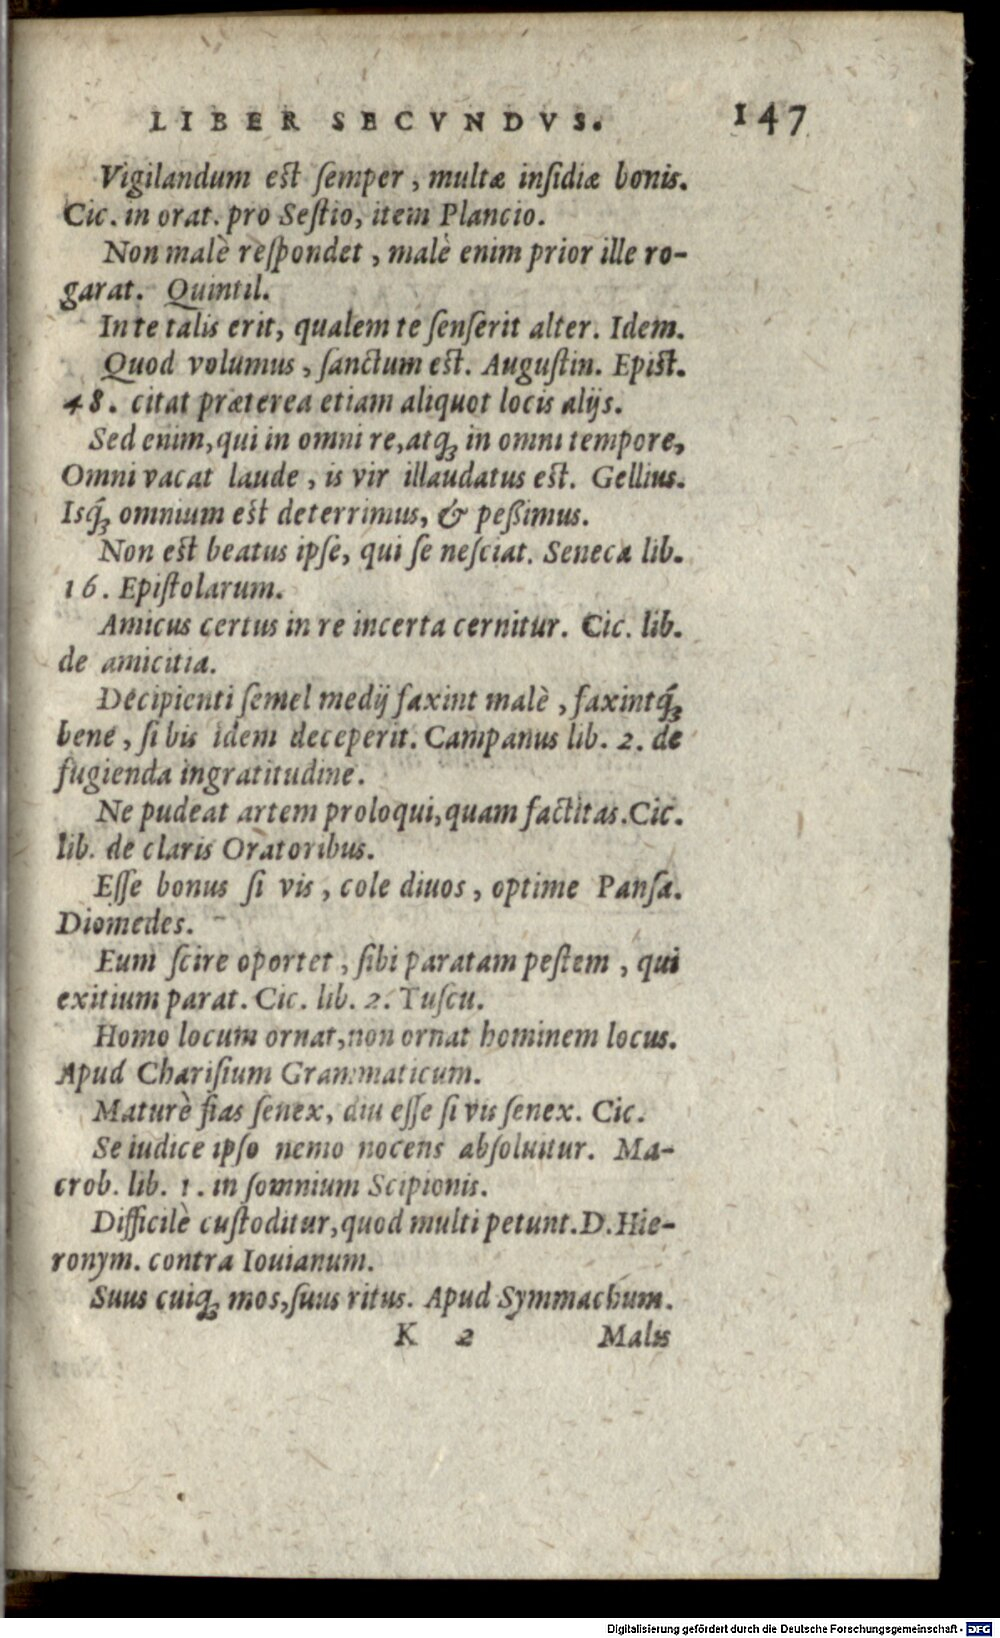 LIBER SECVNDVS. 147
Vigilandum est semper, multæ insidiæ bonis.
Cic. in orat. pro Sestio, item Plancio.
Non malè respondet, malè enim prior ille ro-
garat. Quintil.
In te talis erit, qualem te senserit alter. Idem.
Quod volumus, sanctum est. Augustin. Epist.
48. citat præterea etiam aliquot locis alijs.
Sed enim, qui in omni re, atq; in omni tempore,
Omni vacat laude, is vir illaudatus est. Gellius.
Isq́; omnium est deterrimus, & peßimus.
Non est beatus ipse, qui se nesciat. Seneca lib.
16. Epistolarum.
Amicus certus in re incerta cernitur. Cic. lib.
de amicitia.
Decipienti semel medij faxint malè, faxintq́;
bene, si bis idem deceperit. Campanus lib. 2. de
fugienda ingratitudine.
Ne pudeat artem proloqui, quam factitas. Cic.
lib. de claris Oratoribus.
Esse bonus si vis, cole diuos, optime Pansa.
Diomedes.
Eum scire oportet, sibi paratam pestem, qui
exitium parat. Cic. lib. 2. Tuscu.
Homo locum ornat, non ornat hominem locus.
Apud Charisium Grammaticum.
Maturè fias senex, diu esse si vis senex. Cic.
Se iudice ipso nemo nocens absoluitur. Ma-
crob. lib. 1. in somnium Scipionis.
Difficilè custoditur, quod multi petunt. D. Hie-
ronym. contra Iouianum.
Suus cuiq; mos, suus ritus. Apud Symmachum.
K 2 Malis
Digitalisierung gefördert durch die Deutsche Forschungsgemeinschaft - DFG